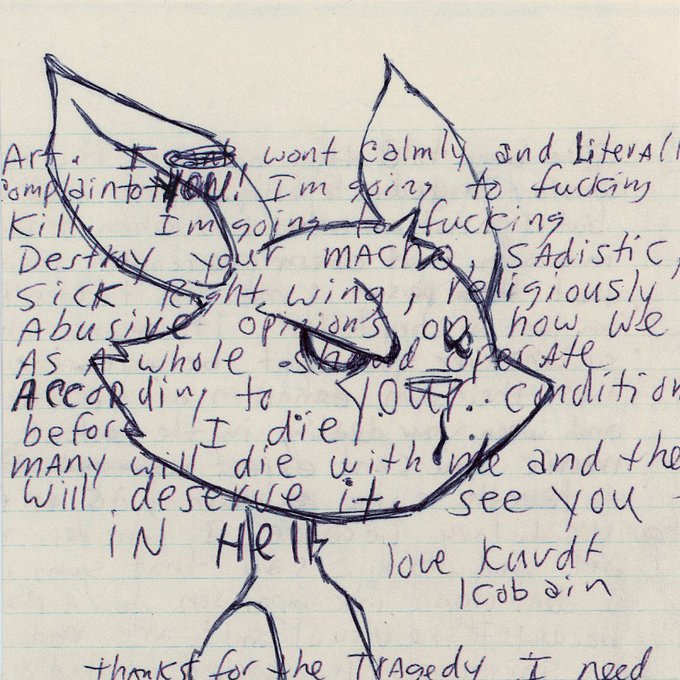 Art. I want, wont calmly and Literall
complain to YOU! Im going to fucking
Kill. Im going to fucking
Destroy your macho, SAdistic,
Sick Right wing, religiously
Abusive opinions on how we
AS A whole should operate
According to YOUR. condition
before I die
mAny will die with me and the
will deserve it. see you
IN Hell
love Kurdt
Kobain
thanks for the TRAgedy I need